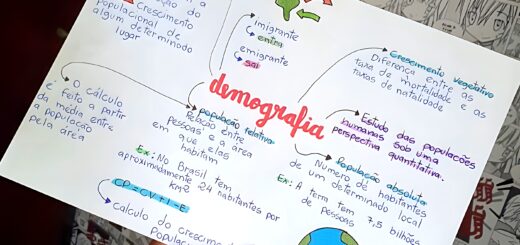 ção do
Crescimento
populacional de
algum determinado
lugar
imigrante
entra
emigrante
sai
demografia
Crescimento vegetativo
Diferença entre as
taxa de mortalidade e as
taxas de natalidade
Estudo das populações
humanas sob uma
perspectiva quantitativa.
População absoluta
Número de habitantes
de um determinado local
Ex: A terra tem 7,5 bilhões
de pessoas
população relativa
Relação entre
pessoas e a área
em que elas
habitam
Ex: No Brasil tem
aproximadamente 24 habitantes por
km2
O cálculo
é feito a partir
da média entre
a população
pela área
CP = CV + I - E
Calculo do crescimento
popula